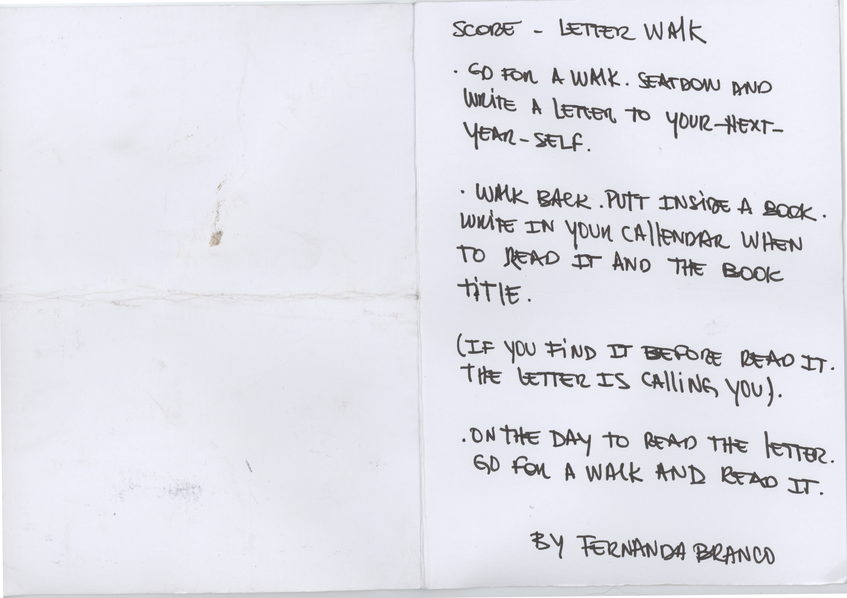 SCORE - LETTER WALK
· GO FOR A WALK. SEATDOW AND
WRITE A LETTER TO YOUR-NEXT-
YEAR-SELF.
· WALK BACK. PUTT INSIDE A BOOK.
WRITE IN YOUR CALLENDAR WHEN
TO READ IT AND THE BOOK
TITLE.
(IF YOU FIND IT BEFORE READ IT.
THE LETTER IS CALLING YOU).
· ON THE DAY TO READ THE LETTER.
GO FOR A WALK AND READ IT.
BY FERNANDA BRANCO